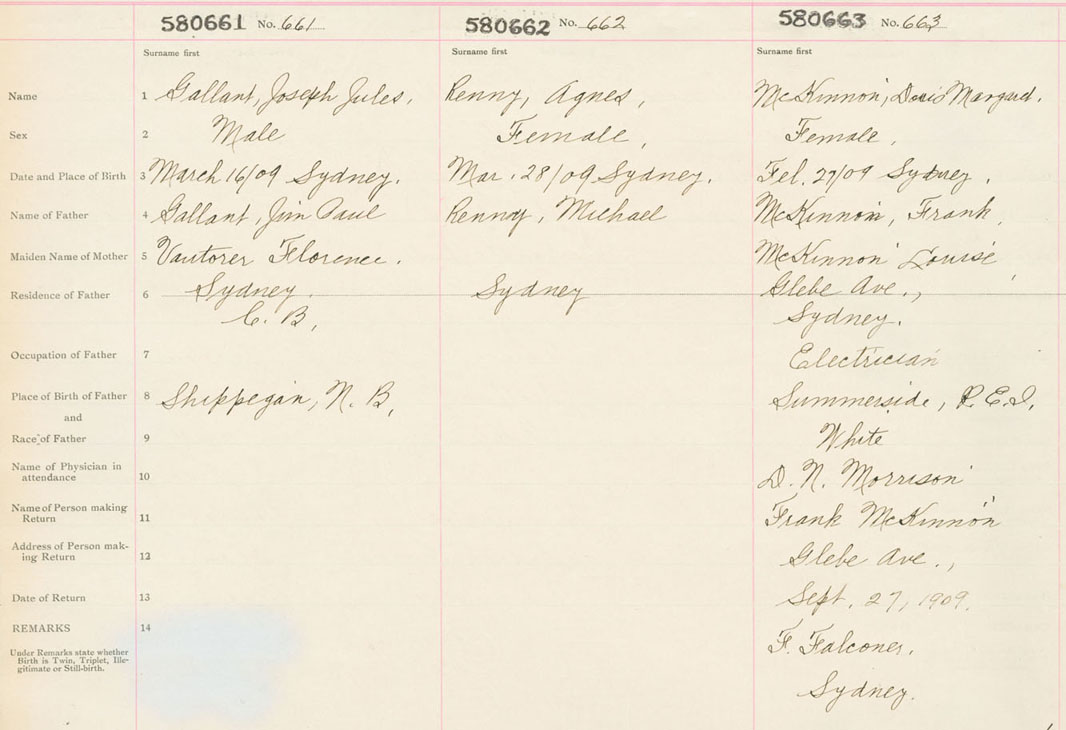 580661 No. 661 580662 No. 662 580663 No. 663
Surname first Surname first Surname first
Name 1 Gallant, Joseph Jules, Renny, Agnes, McKinnon, Doris Margaret.
Sex 2 Male Female, Female,
Date and Place of Birth 3 March 16/09 Sydney. Mar. 28/09 Sydney. Feb. 27/09 Sydney.
Name of Father 4 Gallant, Jim Paul Renny, Michael McKinnon, Frank,
Maiden Name of Mother 5 Florence. McKinnon Louise,
Residence of Father 6 Sydney. Sydney Glebe Ave.,
C. B, Sydney.
Occupation of Father 7 Electrician
Place of Birth of Father 8 Shippegan, N. B, Summerside, P.E.I.
and
Race of Father 9 White
Name of Physician in
attendance 10 D. N. Morrison
Name of Person making
Return 11 Frank McKinnon
Address of Person mak-
ing Return 12 Glebe Ave.,
Date of Return 13 Sept. 27, 1909.
REMARKS 14 F. Falconer.
Under Remarks state whether
Birth is Twin, Triplet, Ille-
gitimate or Still-birth.
Sydney.